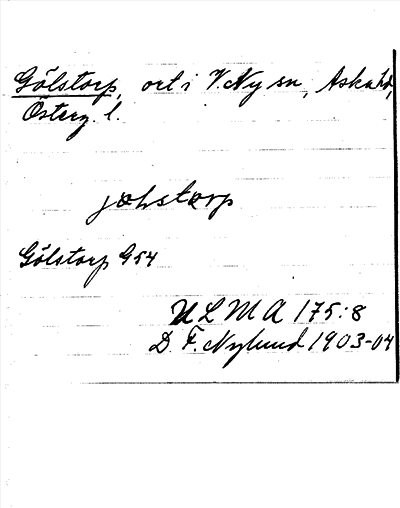 Gölstorp, ort i V. Ny sn, Aska hd,
Österg. l.
jølstorp
Gölstorp G 54
ULMA 175:8
D. F. Nylund 1903-04